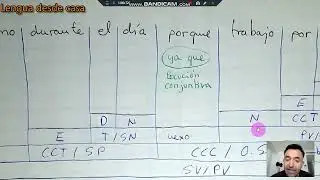 www.BANDICAM.COM
Lengua desde casa
no durante el día porque trabajo por
ya que
locución
conjuntiva
D N E
E T/SN nexo N PV/
CCT/SP CCC/O.S
SV/PV